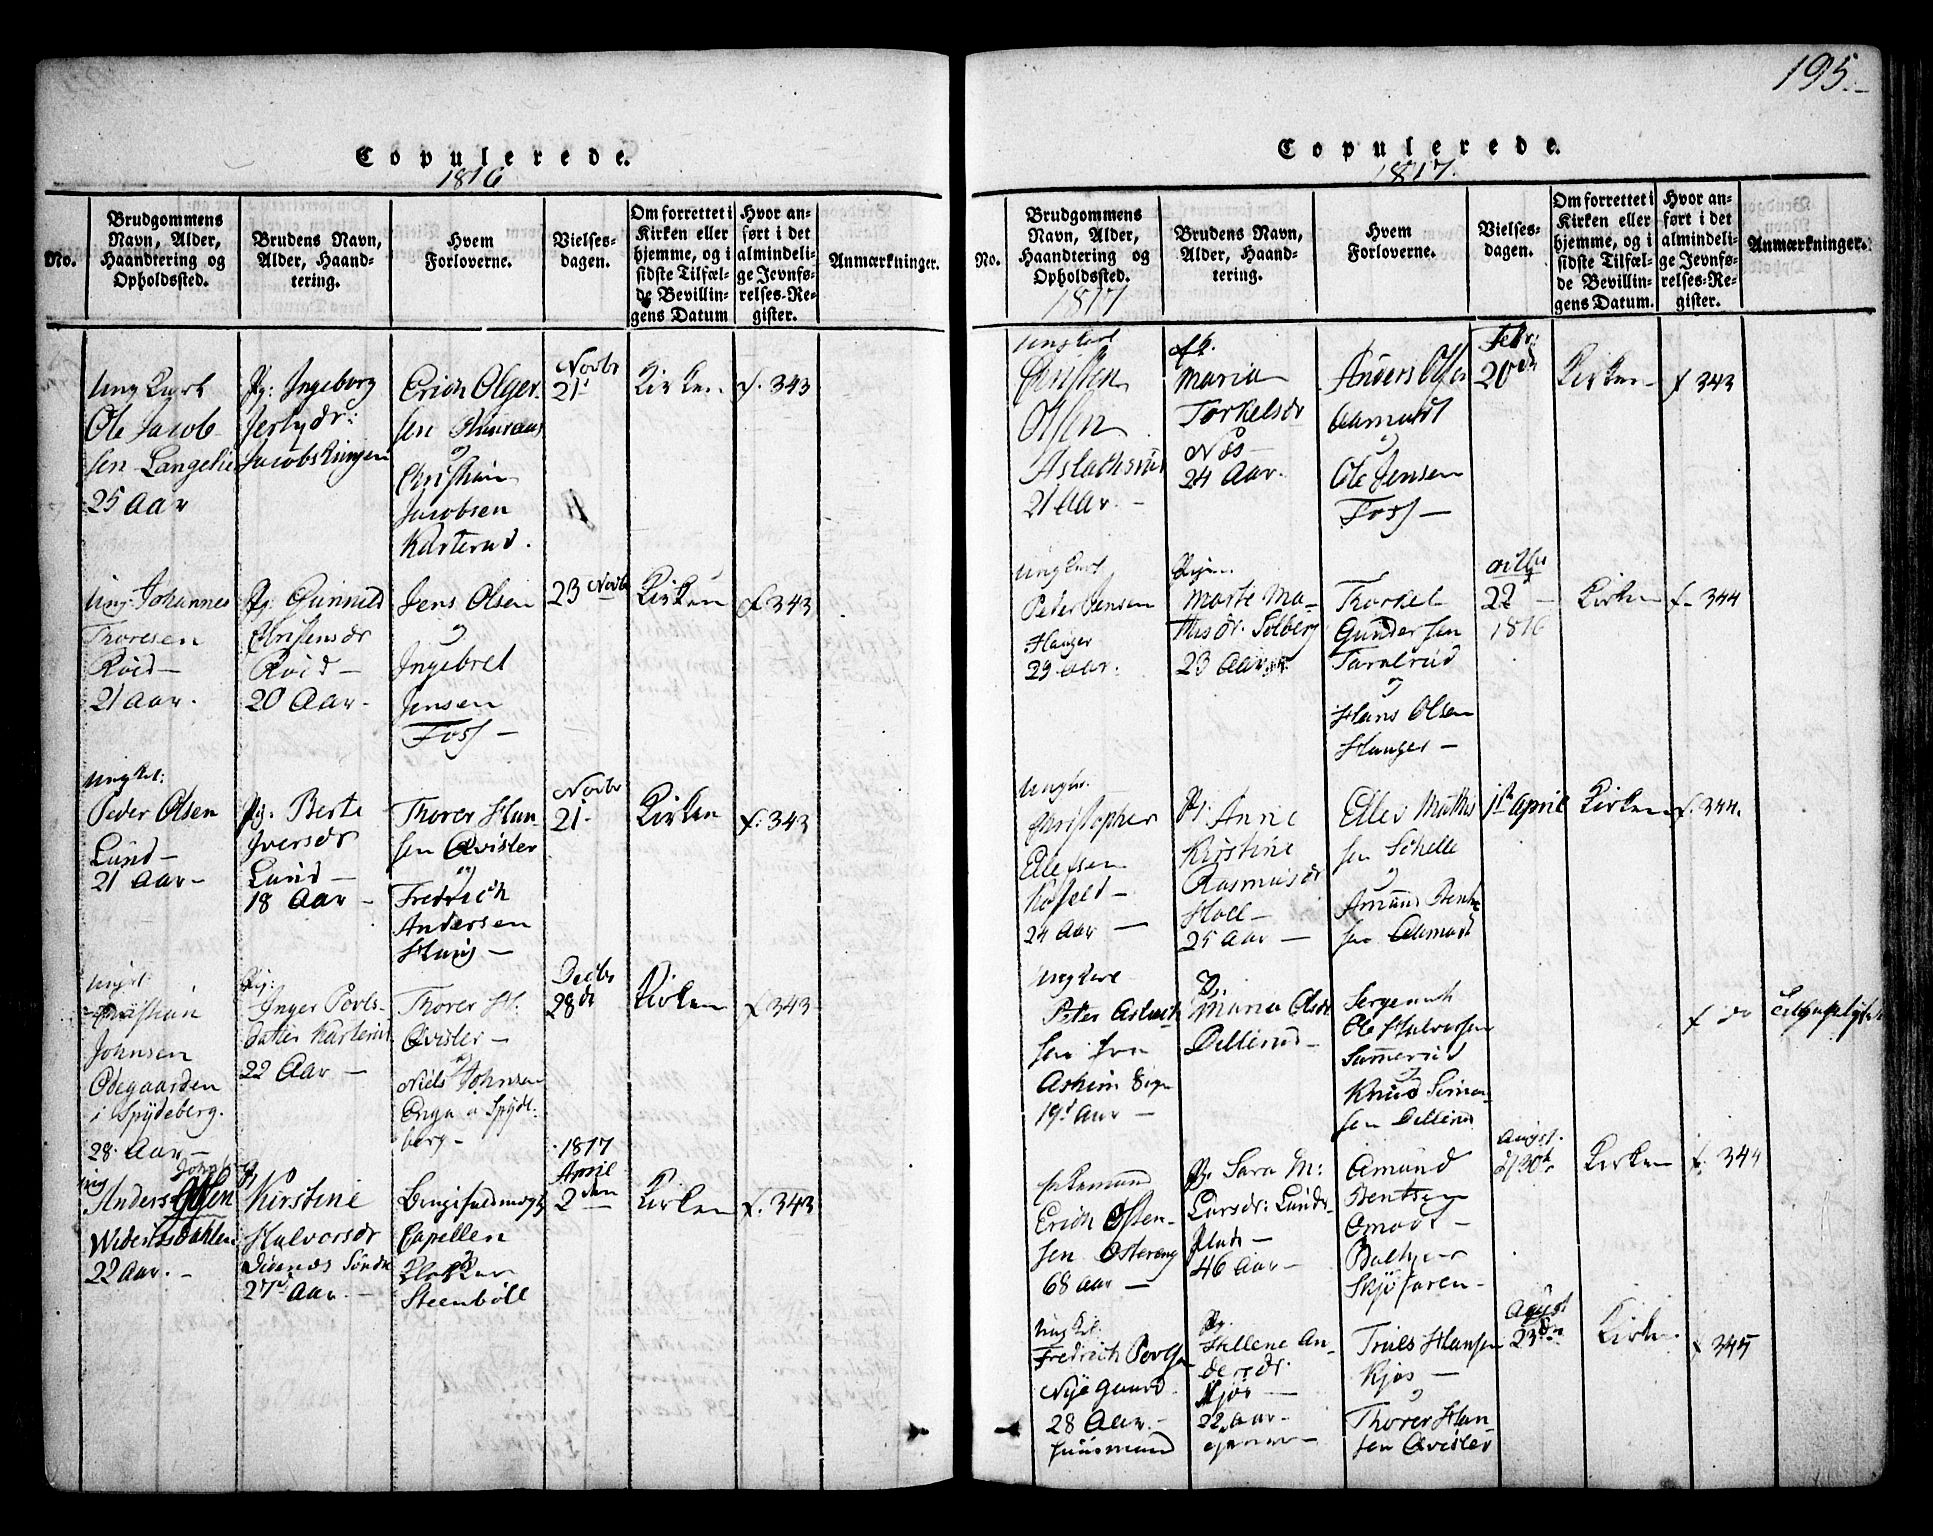 195.
Copulerede.
1816
No.
Brudgommens
Navn, Alder,
Haandtering og
Opholdssted.
Brudens Navn,
Alder, Haand-
tering.
Hvem
Forloverne.
Vielses-
dagen.
Om forrettet i
Kirken eller
hjemme, og i
sidste Tilfæl-
de Bevillin-
gens Datum
Hvor an-
ført i det
almindeli-
ge Jevnfø-
relses-Re-
gister.
Anmærkninger.
Ung Karl
Ole Jacob-
sen Langelie
25 Aar
Pg: Ingeborg
Jacobs
Erich Olger-
sen
og
Christian
Jacobsen
Kasterud.
Novbr
21
Kirken
f. 343
Ung: Johannes
Thoresen
Röid-
21 Aar.
Pg: Gunnild
Christensdr
Röid-
20 Aar-
Jens Olsen
og
Ingebret
Jensen
Foss-
23 Novbr
Kirken
f 343
Ungkl:
Peder Olsen
Lund-
21 Aar-
Pg. Berte
Iversdr
Lund-
18 Aar-
Thorer Han-
sen Qvisler
og
Fredrich
Andersen
Haug-
Novbr
21-
Kirken
f. 343
Ungkl
Christian
Johnsen
Ödegaarden
i Spydeberg.
28. Aar-
Pig:
Inger Povls-
datter Kasterud
22 Aar-
Thorer H.
Qvisler-
og
Niels Johnsen
Enga i Spyde-
berg-
Decbr
28de
Kirken
f 343
Ung
Anders
22 Aar.-
Pg
Kirstine
Halvorsdr
27 Aar.-
Capellen
og
Klokker
Steenböll
1817
April
2den
Kirken
f. 343
Copulerede.
1817.
No.
Brudgommens
Navn, Alder,
Haandtering og
Opholdssted.
1817
Brudens Navn,
Alder, Haand-
tering.
Hvem
Forloverne.
Vielses-
dagen.
Om forrettet i
Kirken eller
hjemme, og i
sidste Tilfæl-
de Bevillin-
gens Datum.
Hvor an-
ført i det
almindeli-
ge Jevnfø-
relses-Re-
gister.
Anmærkninger.
Ungkarl
Christen
Olsen
21 Aar.-
Maria
Torkelsdr
Nös-
24 Aar.
Anders Olsen
Aamodt
og
Ole Jensen
Foss-
Febr:
20de
Kirken
f 343
Ungkarl
Peter Jensen
Hauger
29 Aar.
Pigen
Marte Ma-
thisdr. Solberg
23 Aar
Thorkel
Gundersen
Taralrud
og
Hans Olsen
Hauger-
22
1816
Kirken
f- 344
Ungkr.
Christopher
Ellefsen
24 Aar-
Pg. Anne
Kirstine
Rasmusdr
Holl-
25 Aar-
Ellef Mathis
sen Schelle
og
Amund Bent-
sen Aamodt
1ste April
Kirken
f. 344.
Ungkarl
Peter Aslach
sen fra
Askim Sogn
19 Aar-
P.
Maria Olsdr
Dillerud-
Sergeant
Ole Halvorsen
Sæmerud
og
Knud Simen-
sen Dillerud
f do
Enkemand
Erich Osten-
sen Östereng
68 Aar-
Pg. Sara M:
Larsdr: Lunds
Plads-
46 Aar-
Amund
Bentsen
Omodt-
Baltzer
Skjöfaren-
August.
d/30te
Kirken
f: 344
Ungkl.
Fredrich Povlsen
Nygaard
28 Aar-
Huusmand
Pg.
Hellene An-
dersdr
Kjös-
22 Aar-
Truls Hansen
Kjös-
og
Thorer Han-
sen Qvisler
August
23de
Kirken
f 345